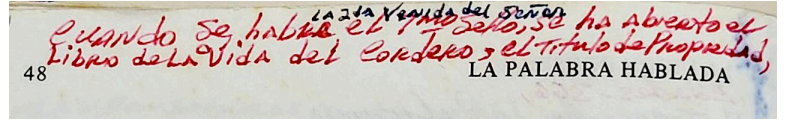 LA 2da Venida del Señor
CUANDO Se habla el 7mo Sello, Se ha Abierto el
Libro de LA Vida del Cordero, el Titulo de Propiedad,
48 LA PALABRA HABLADA